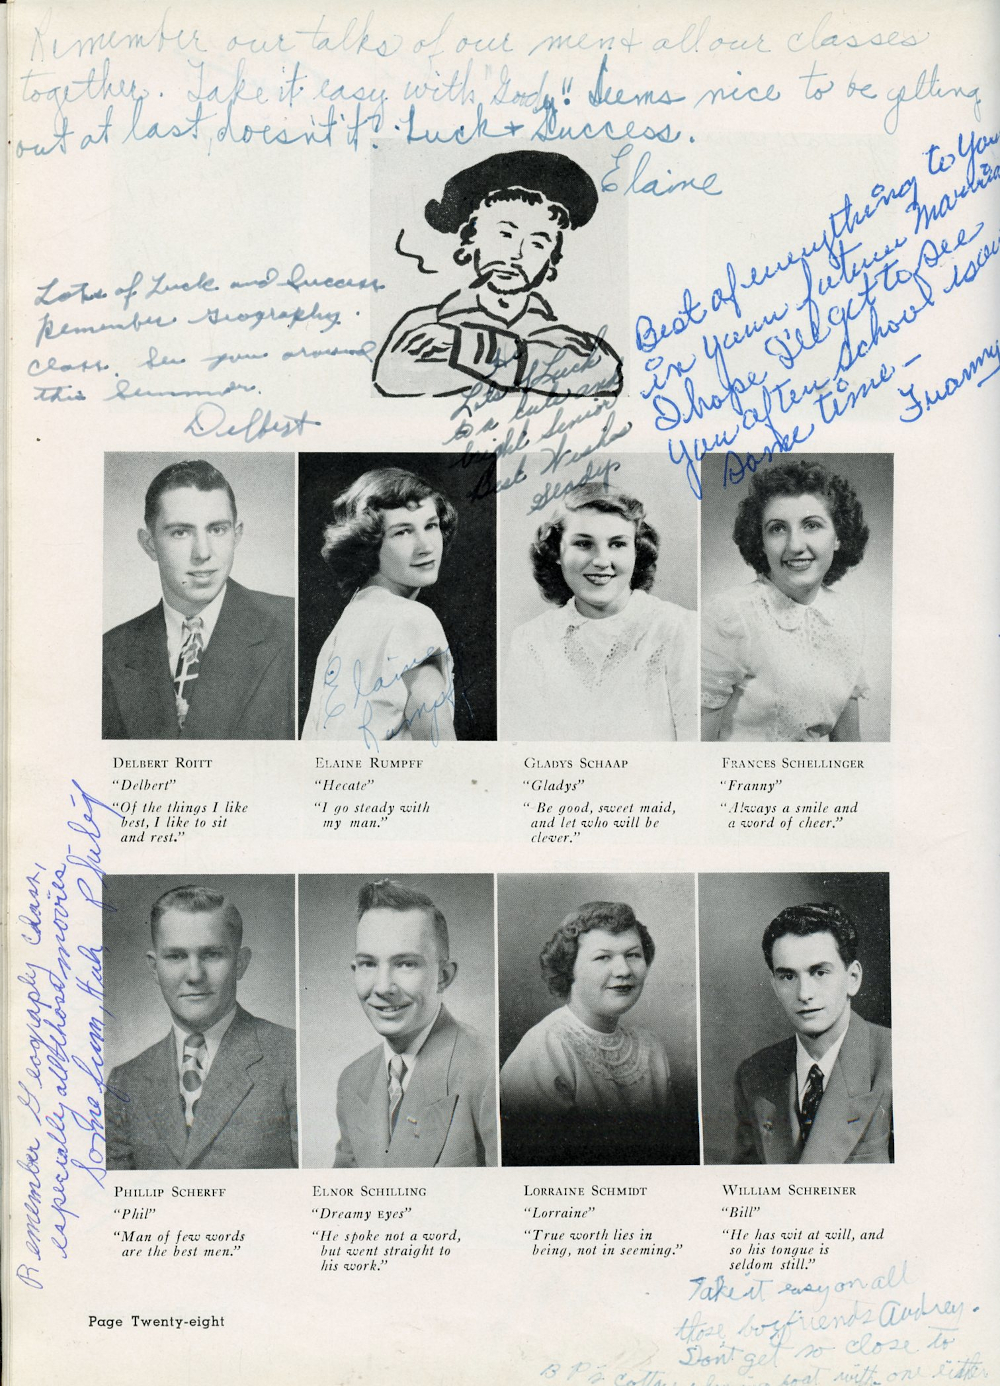 Remember our talks of our men & all our classes
together. Take it easy with "Gordy"!! Seems nice to be getting
out at last, doesn't it? Luck & Success.
Elaine
Best of everything to You
in your future Marriage
I hope I'll get to see
you after school is out
some time —
Franny
Lots of Luck and Success
Remember Geography
class. See you around
this Summer.
Delbert
Lots of Luck
to a cute and
bright Senior
Best Wishes
Gladys
Elaine
Rumpff
DELBERT ROITT
"Delbert"
"Of the things I like
best, I like to sit
and rest."
ELAINE RUMPFF
"Hecate"
"I go steady with
my man."
GLADYS SCHAAP
"Gladys"
"Be good, sweet maid,
and let who will be
clever."
FRANCES SCHELLINGER
"Franny"
"Always a smile and
a word of cheer."
Remember Geography Class,
especially all those movies—
Some fun, Huh
PHILLIP SCHERFF
"Phil"
"Man of few words
are the best men."
ELNOR SCHILLING
"Dreamy Eyes"
"He spoke not a word,
but went straight to
his work."
LORRAINE SCHMIDT
"Lorraine"
"True worth lies in
being, not in seeming."
WILLIAM SCHREINER
"Bill"
"He has wit at will, and
so his tongue is
seldom still."
Take it easy on all
those boyfriends Audrey.
Don't get so close to
boat with one either
Page Twenty-eight